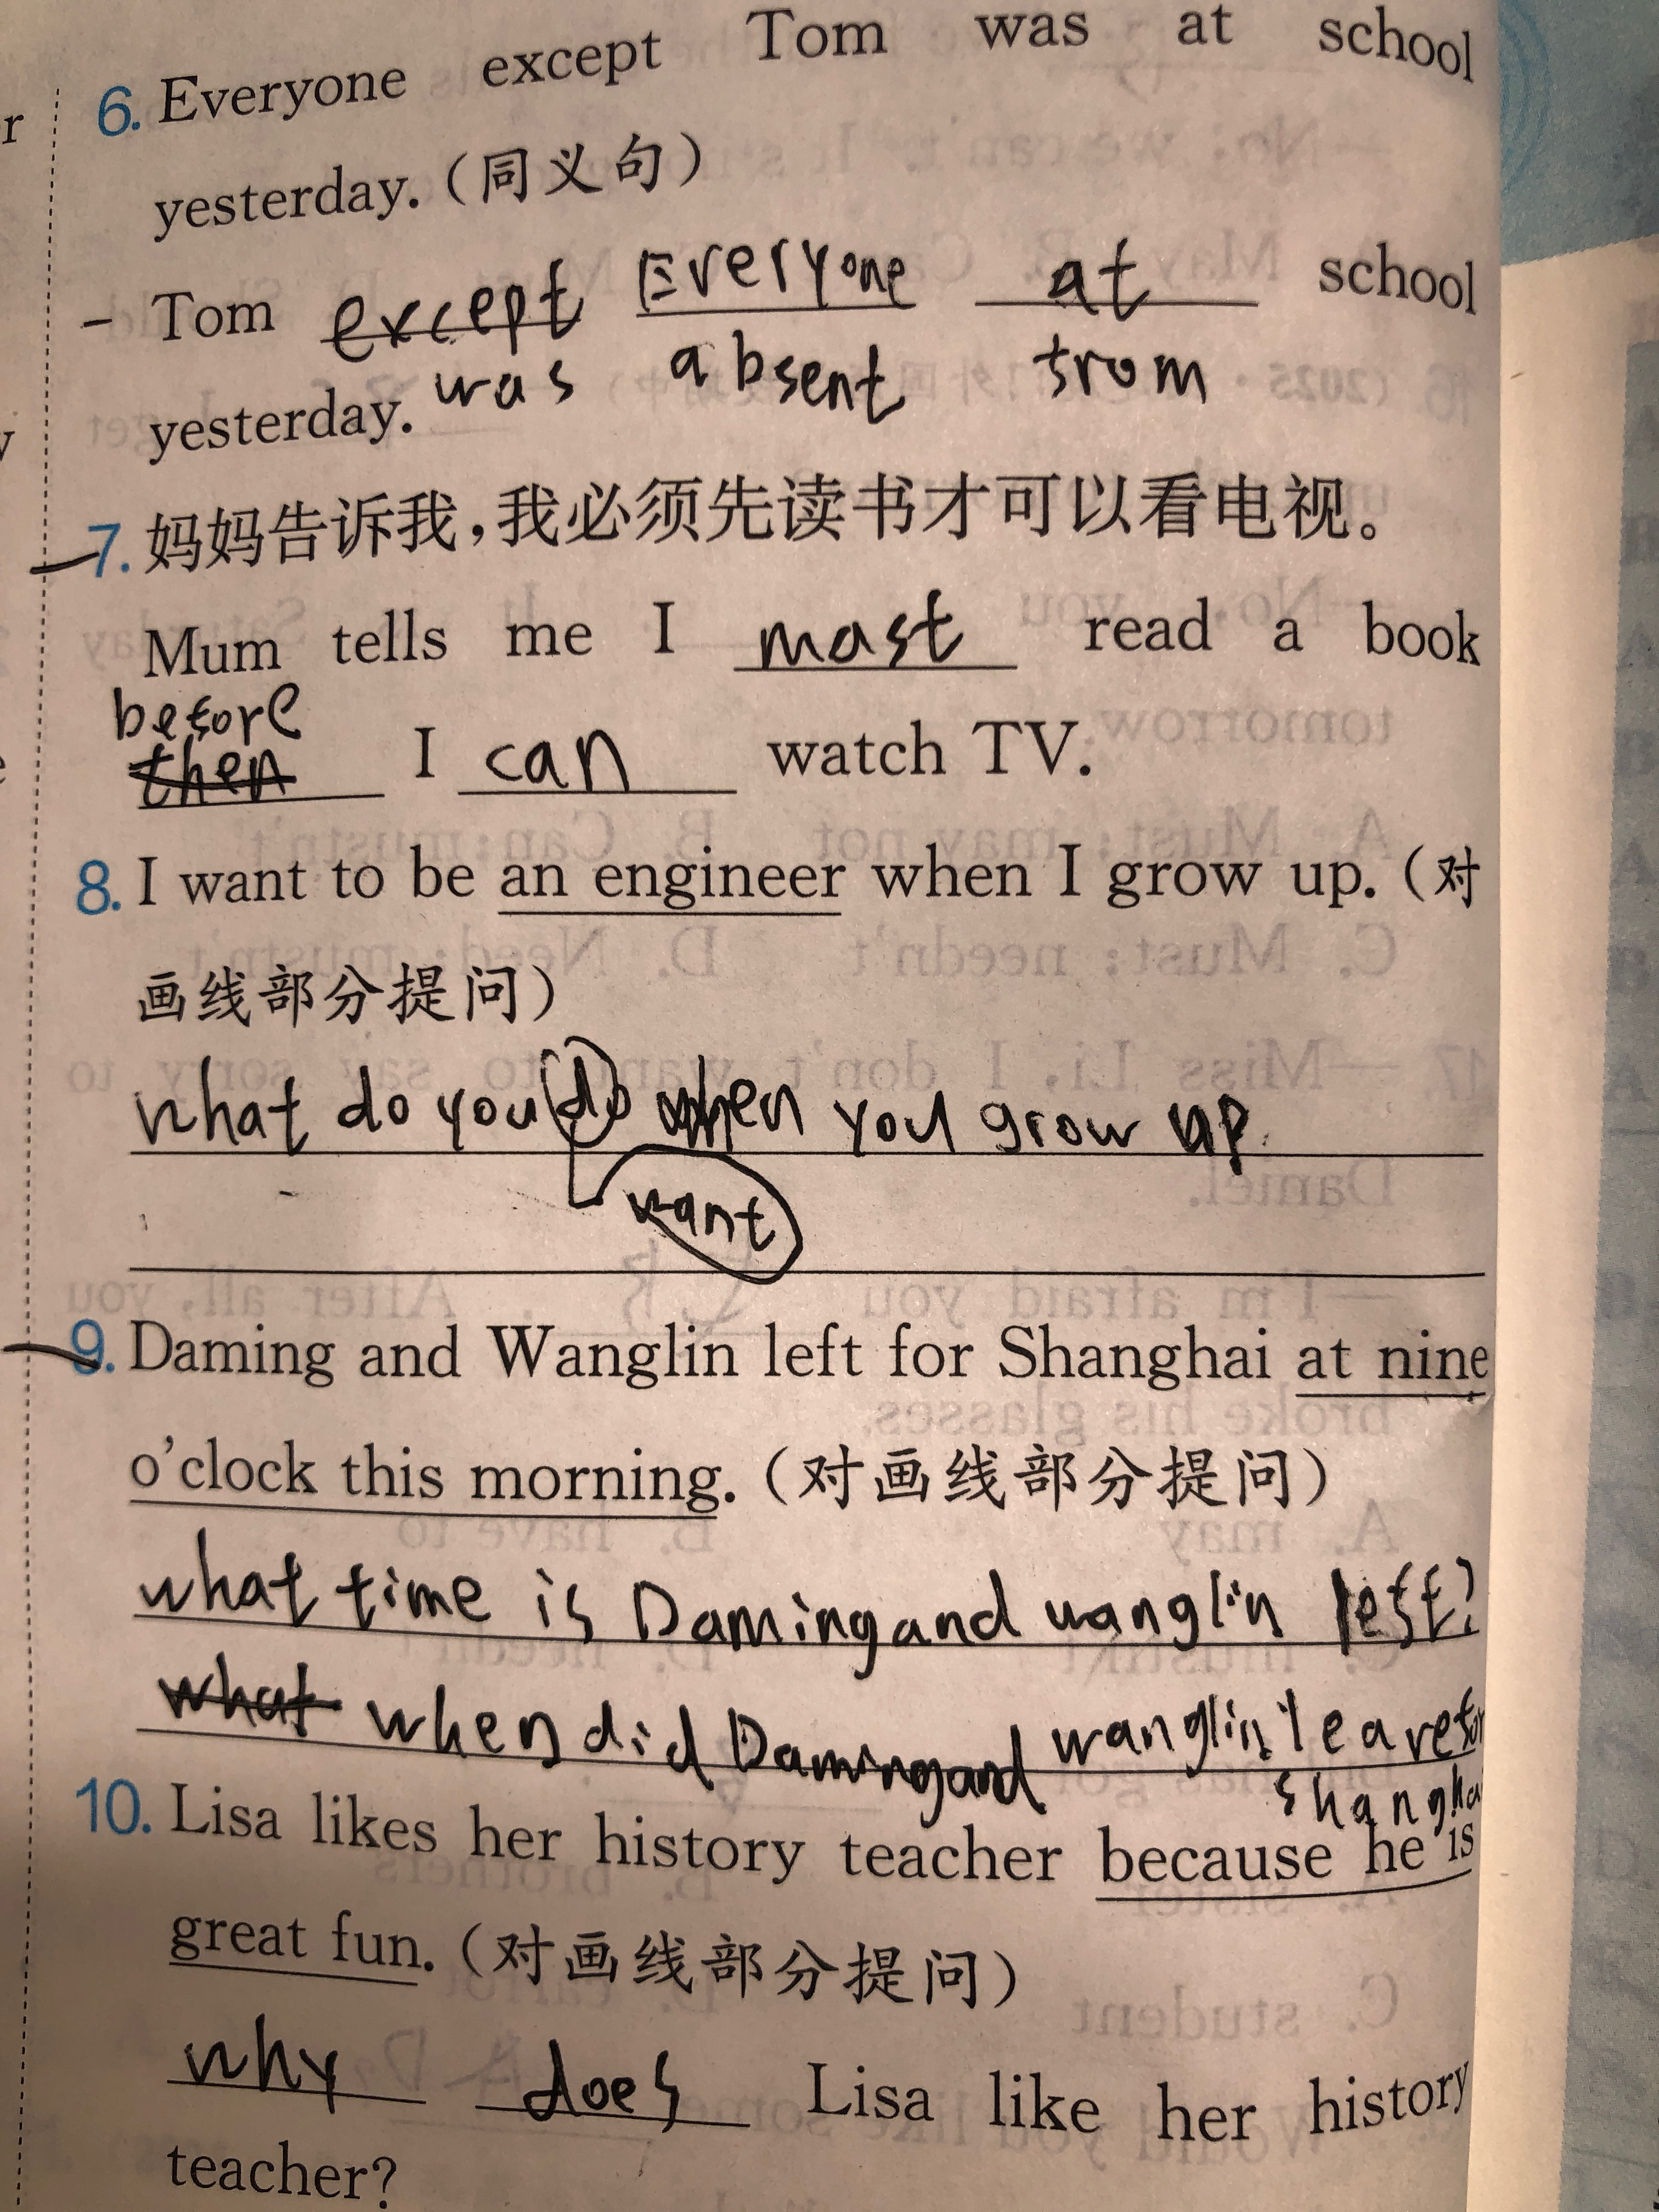 6. Everyone except Tom was at school
yesterday.(同义句)
Tom except Everyone at school
yesterday. was absent from
7. 妈妈告诉我,我必须先读书才可以看电视。
Mum tells me I mast read a book
before
then I can watch TV.
8. I want to be an engineer when I grow up.(对
画线部分提问)
what do you do when you grow up.
want
9. Daming and Wanglin left for Shanghai at nine
o'clock this morning.(对画线部分提问)
what time is Daming and wanglin left?
what when did Daming and wanglin leave for
shangha
10. Lisa likes her history teacher because he is
great fun.(对画线部分提问)
why does Lisa like her history
teacher?